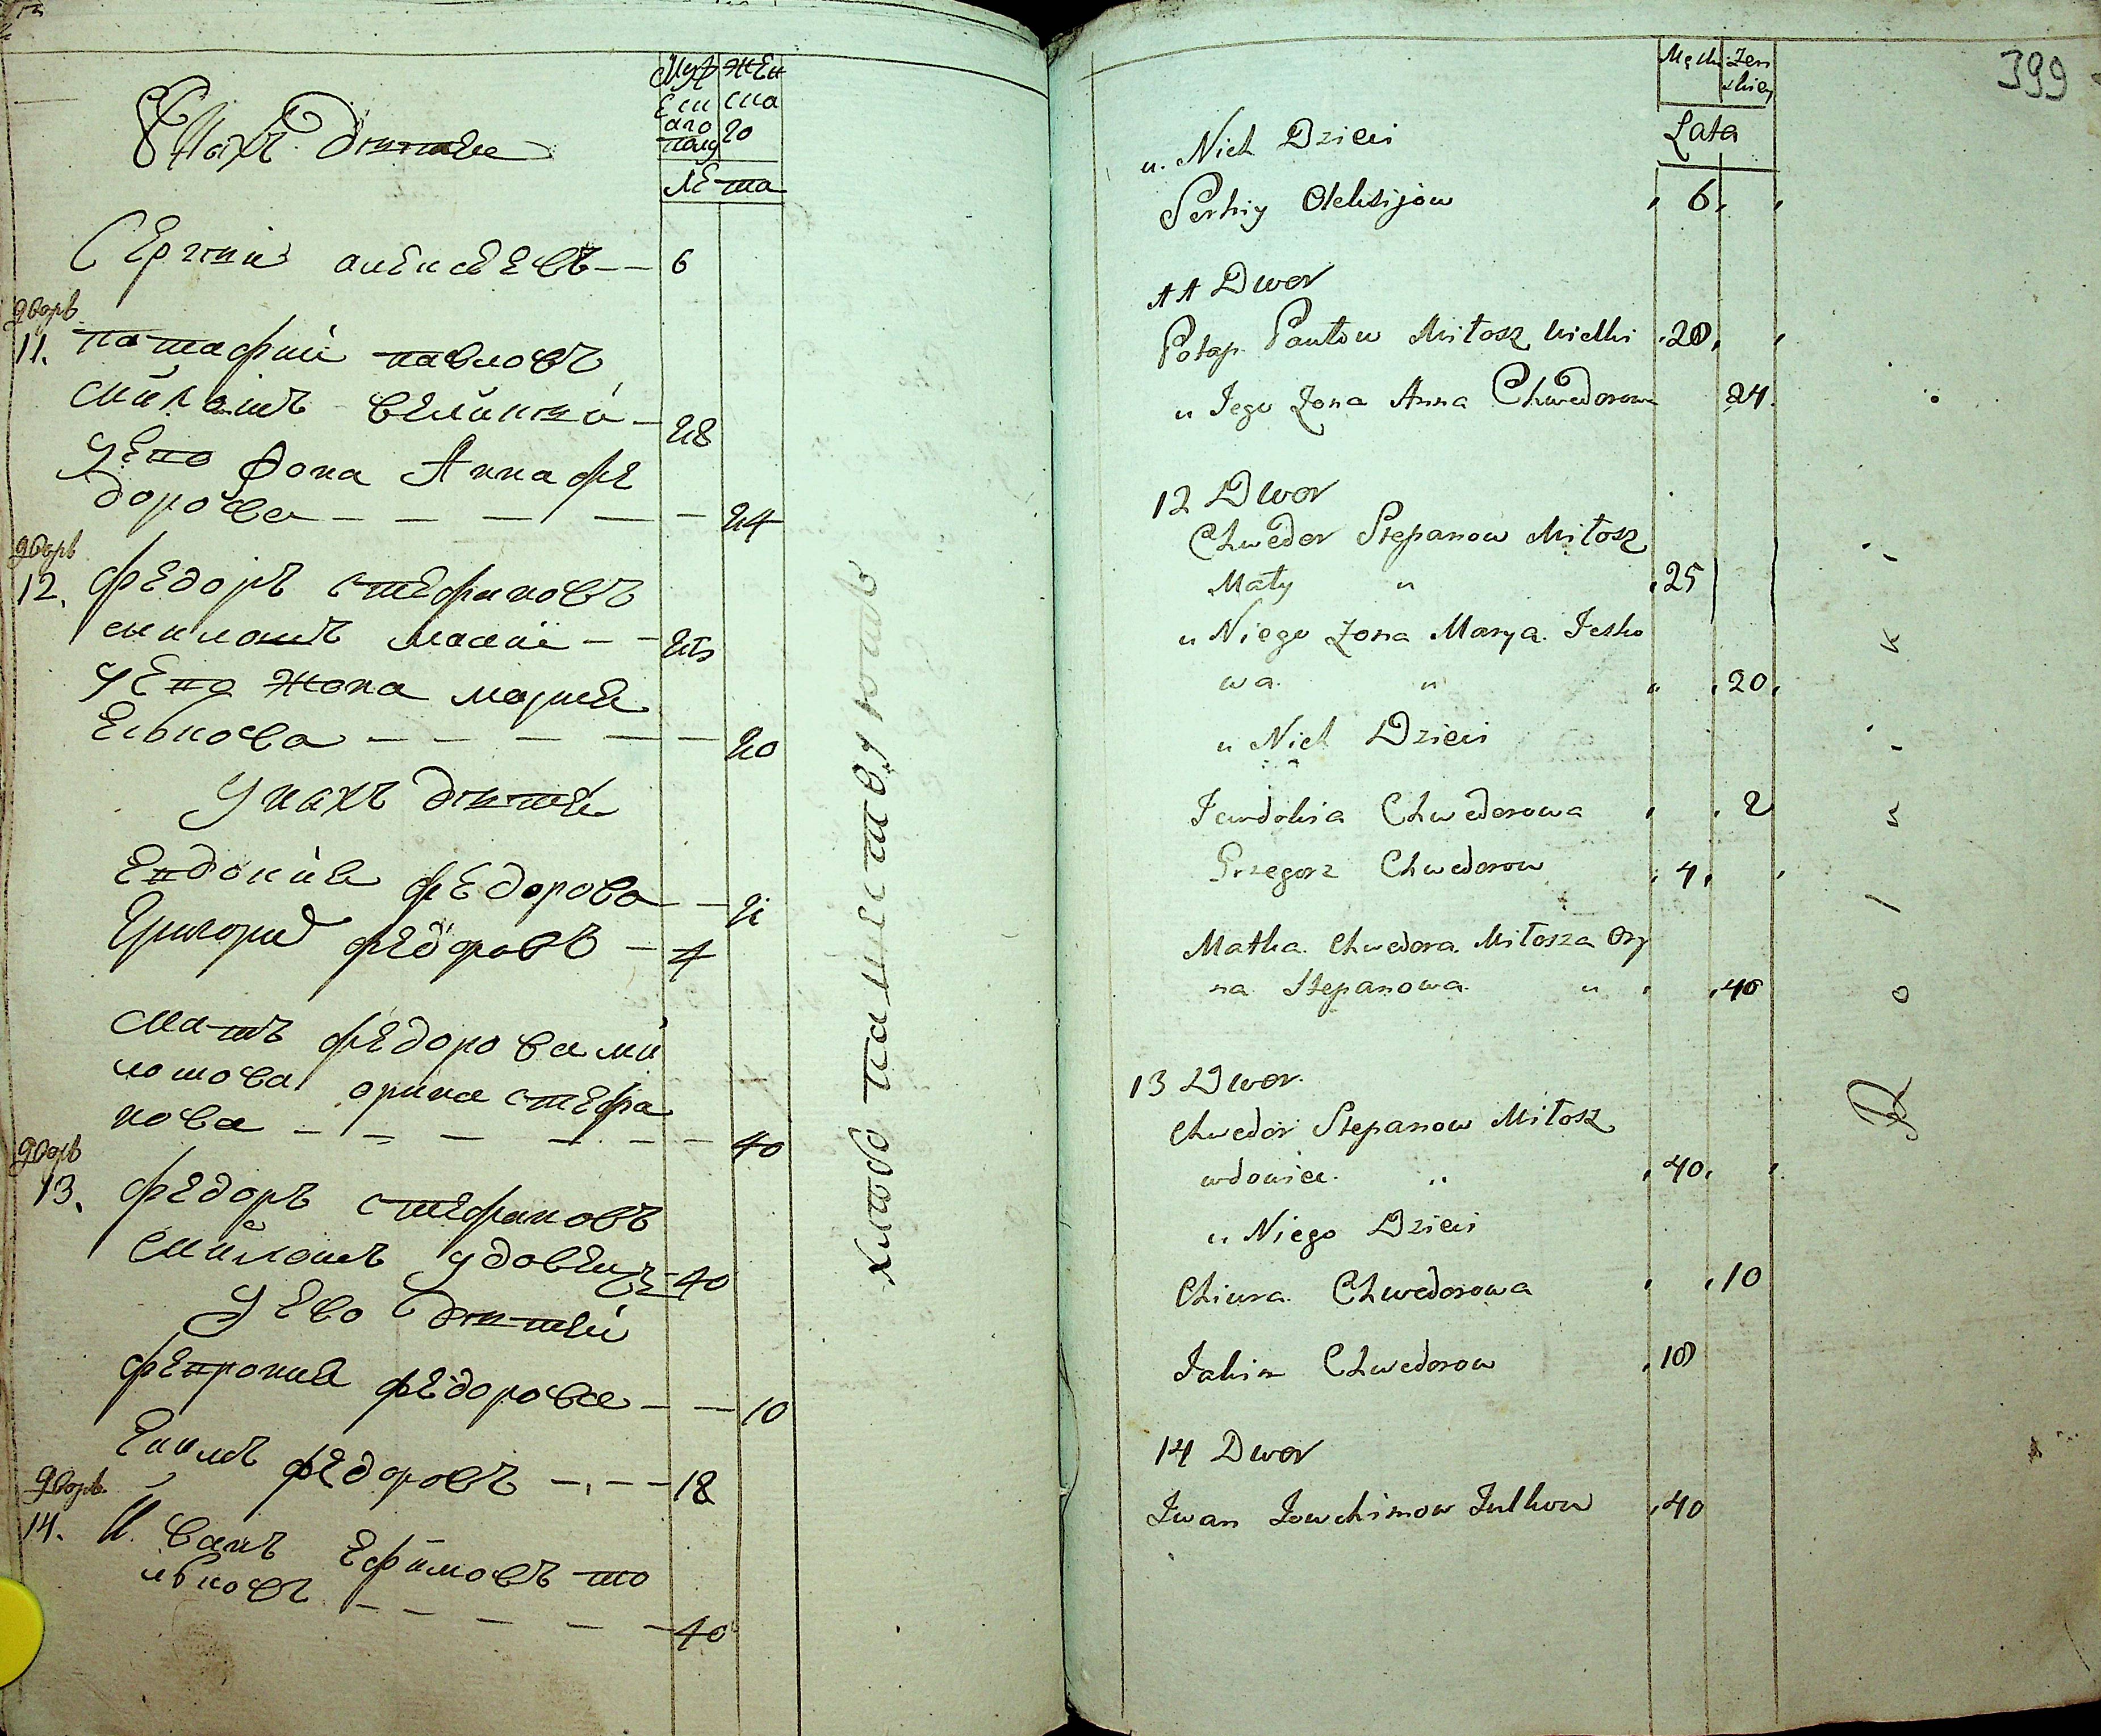 Муж жен
ска
го
Лета
У нихъ дѣтей
Сергѣй алексеевъ 6
дворъ
11. патафий павловъ
милошъ великий 28
у ево жона Анна фе
дорова 24
дворъ
12. федоръ стефановъ
милошъ малий 25
у ево жона мария
20
У нихъ дѣтей
Евдокия федорова 2
Григорий федоровъ 4
мать федорова ми
лошова орина стефа
нова 40
дворъ
13. федоръ стефановъ
милошъ удовецъ 40
У ево дѣтей
феврония федорова 10
Екимъ федоровъ 18
дворъ
14. Иванъ Ефимовъ
40
399
Lata
u Nich Dzieci
Serhiy Oleksijow 6
11 Dwor
Potap Pawłow Miłosz Wielki 28
u Jego Zona Anna Chwedorowa 24
12 Dwor
Chwedor Stepanow Miłosz
Mały 25
u Niego Zona Marya Jesko
wa 20
u Nich Dzieci
Jewdokia Chwedorowa 2
Grzegorz Chwedorow 4
Matka Chwedora Miłosza Ory
na Stepanowa 40
13 Dwor
Chwedor Stepanow Miłosz
wdowiec 40
u Niego Dzieci
Chiwra Chwedorowa 10
Jakim Chwedorow 18
14 Dwor
Iwan Jowchimow 40